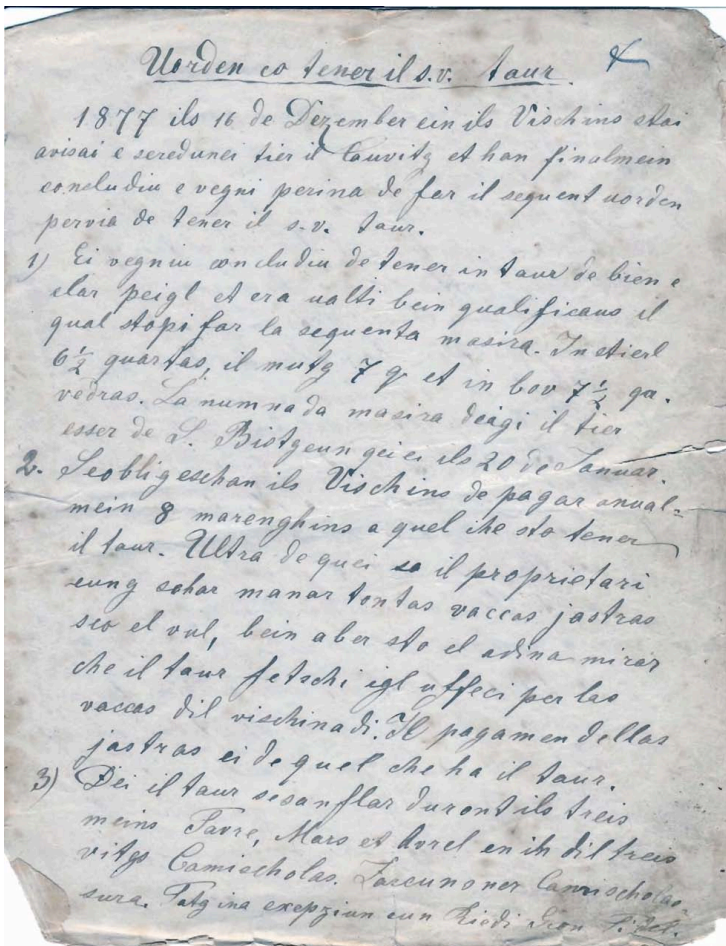 Uorden co tener il s.v. taur.
1877 ils 16 de Dezember ein ils Vischins stai
avisai e seredunei tier il Cauvitg et han finalmein
concludiu e vegni perina de far il sequent uorden
pervia de tener il s.v. taur.
1) Ei vegniu concludiu de tener in taur de bien e
clar peigl et era ualti bein qualificaus il
qual stopi far la sequenta masira. In stierl
6½ quartas, il mutg 7 q et in bov 7½ qu.
vedras. La numnada masira deigi il tier
esser de S. Bistgeun gei ei ils 20 de Januar.
2. Seobligeschan ils Vischins de pagar anual-
mein 8 marenghins a quel che sto tener
il taur. Ultra de quei sa il proprietari
aung schar manar tontas vaccas jastras
sco el vul, bein aber sto el adina mirar
che il taur fetschi igl uffeci per las
vaccas dil vischinadi. Il pagamen dellas
jastras ei de quel che ha il taur.
3) Dei il taur sesanflar duront ils treis
meins Favre, Mars et Avrel en in dil treis
vitgs Camischolas. Zarcuns ner Camischolas
sura. Fatg ina exepziun cun Riedi Gion Fidel.